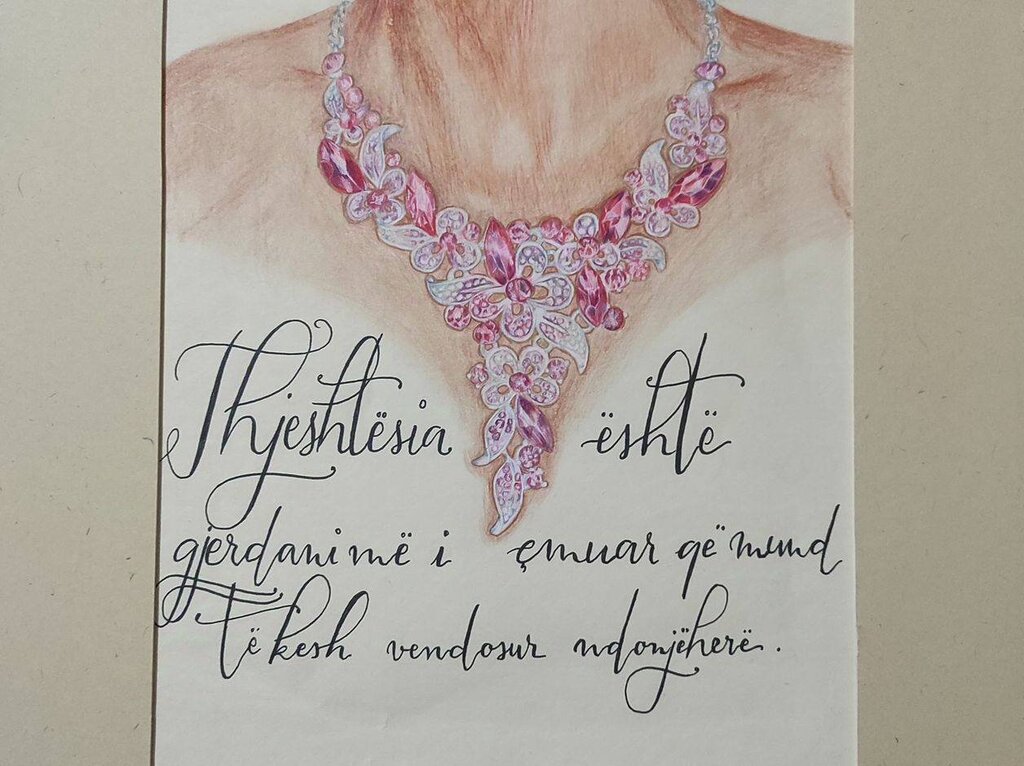 Thjeshtësia është
gjerdani më i çmuar që mund
të kesh vendosur ndonjëherë.